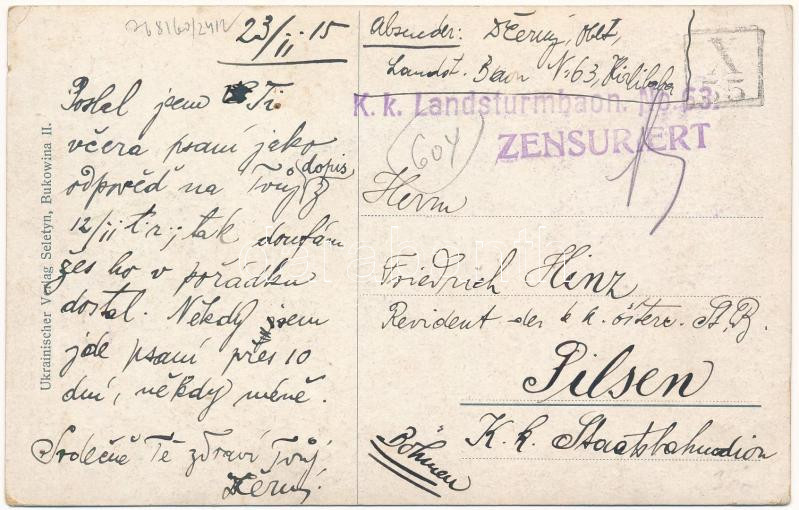 768160/2412
23/II 15
Poslal jsem Ti
včera psaní jako
odpověď na Tvůj dopis z
12/II t.r.; tak doufám
žes ho v pořádku
dostal. Někdy jsem
jde psaní přes 10
dní, někdy méně.
Srdečně Tě zdraví Tvůj
Dčerný.
Ukrainischer Verlag Seletyn, Bukowina II.
Absender: Dčerný, Oblt,
Landst. Baon No 63, Kirlibaba
K. k. Landsturmbaon. No. 63.
ZENSURIERT
604
Herrn
Friedrich Hinz
Revident der k. k. österr. St. B.
Pilsen
K. k. Staatsbahndion
Böhmen